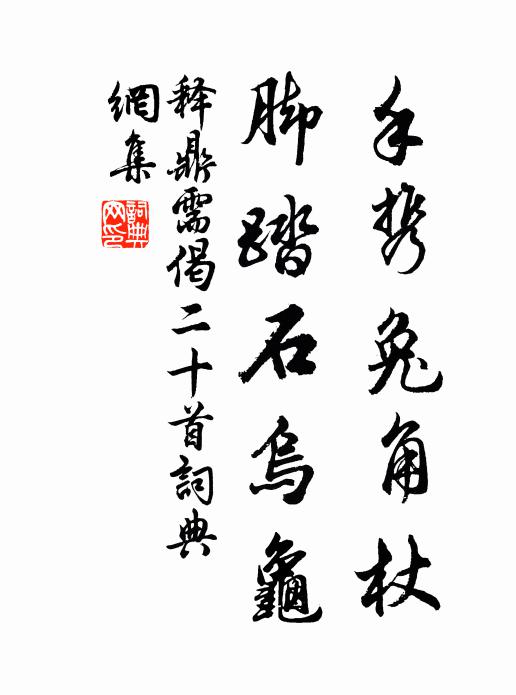 手携兔角杖
脚踏石烏龜
释鼎需偈二十首詞典
網集
詞典
网印